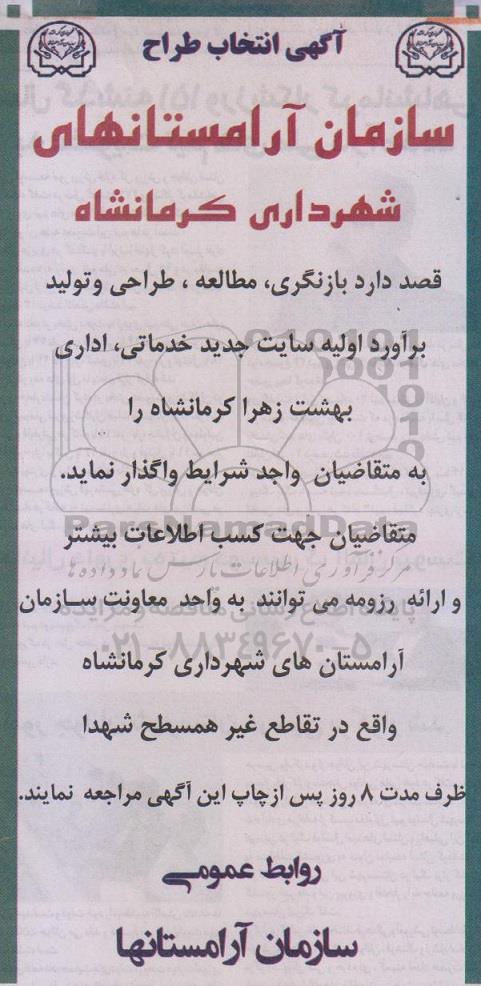 آگهی انتخاب طراح
سازمان آرامستانهای
شهرداری کرمانشاه
قصد دارد بازنگری، مطالعه ، طراحی وتولید
برآورد اولیه سایت جدید خدماتی، اداری
بهشت زهرا کرمانشاه را
به متقاضیان واجد شرایط واگذار نماید.
ParsNamadData
متقاضیان جهت کسب اطلاعات بیشتر
مرکز فرآوری اطلاعات پارس نماد داده ها
و ارائه رزومه می توانند به واحد معاونت سازمان
۰۲۱-۸۸۳۴۹۶۷۰-۵
آرامستان های شهرداری کرمانشاه
واقع در تقاطع غیر همسطح شهدا
ظرف مدت ۸ روز پس ازچاپ این آگهی مراجعه نمایند.
روابط عمومی
سازمان آرامستانها